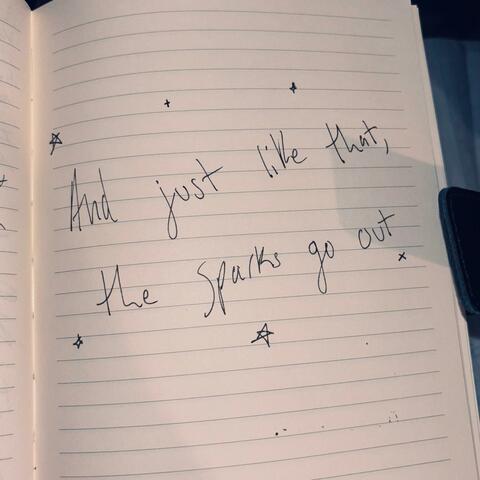 And just like that,
the sparks go out